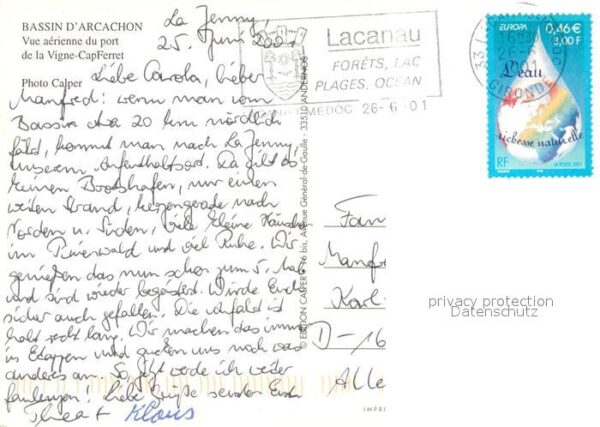 BASSIN D'ARCACHON
Vue aérienne du port
de la Vigne-CapFerret
Photo Calper
La Jenny,
25. Juni 2001
Liebe Carola, lieber
Manfred! Wenn man vom
Bassin etwa 20 km nördlich
fährt, kommt man nach La Jenny,
unserem Aufenthaltsort. Da gibt es
keinen Bootshafen, nur einen
weiten Strand, kerzengerade nach
Norden u. Süden, viele kleine Häuschen
im Pinienwald und viel Ruhe. Wir
genießen das nun schon zum 5. Mal
und sind wieder begeistert. Würde Euch
sicher auch gefallen. Die Anfahrt ist
halt recht lang. Wir machen das immer
in Etappen und gucken uns noch was
anderes an. So jetzt werde ich weiter
faulenzen! Liebe Grüße senden Euch
Thea + Klaus
Lacanau
FORÊTS, LAC
PLAGES, OCEAN
MEDOC 26-6-01
33
26-6
01
GIRONDE
EUROPA
0,46 €
3,00 F
L'eau
richesse naturelle
RF
LA POSTE 2001
© EDITION CALPER - 16 bis, Avenue Général-de-Gaulle - 33510 ANDERNOS
Fam
Manfr
Karl-
D-16
Alle
privacy protection
Datenschutz
IMPRI